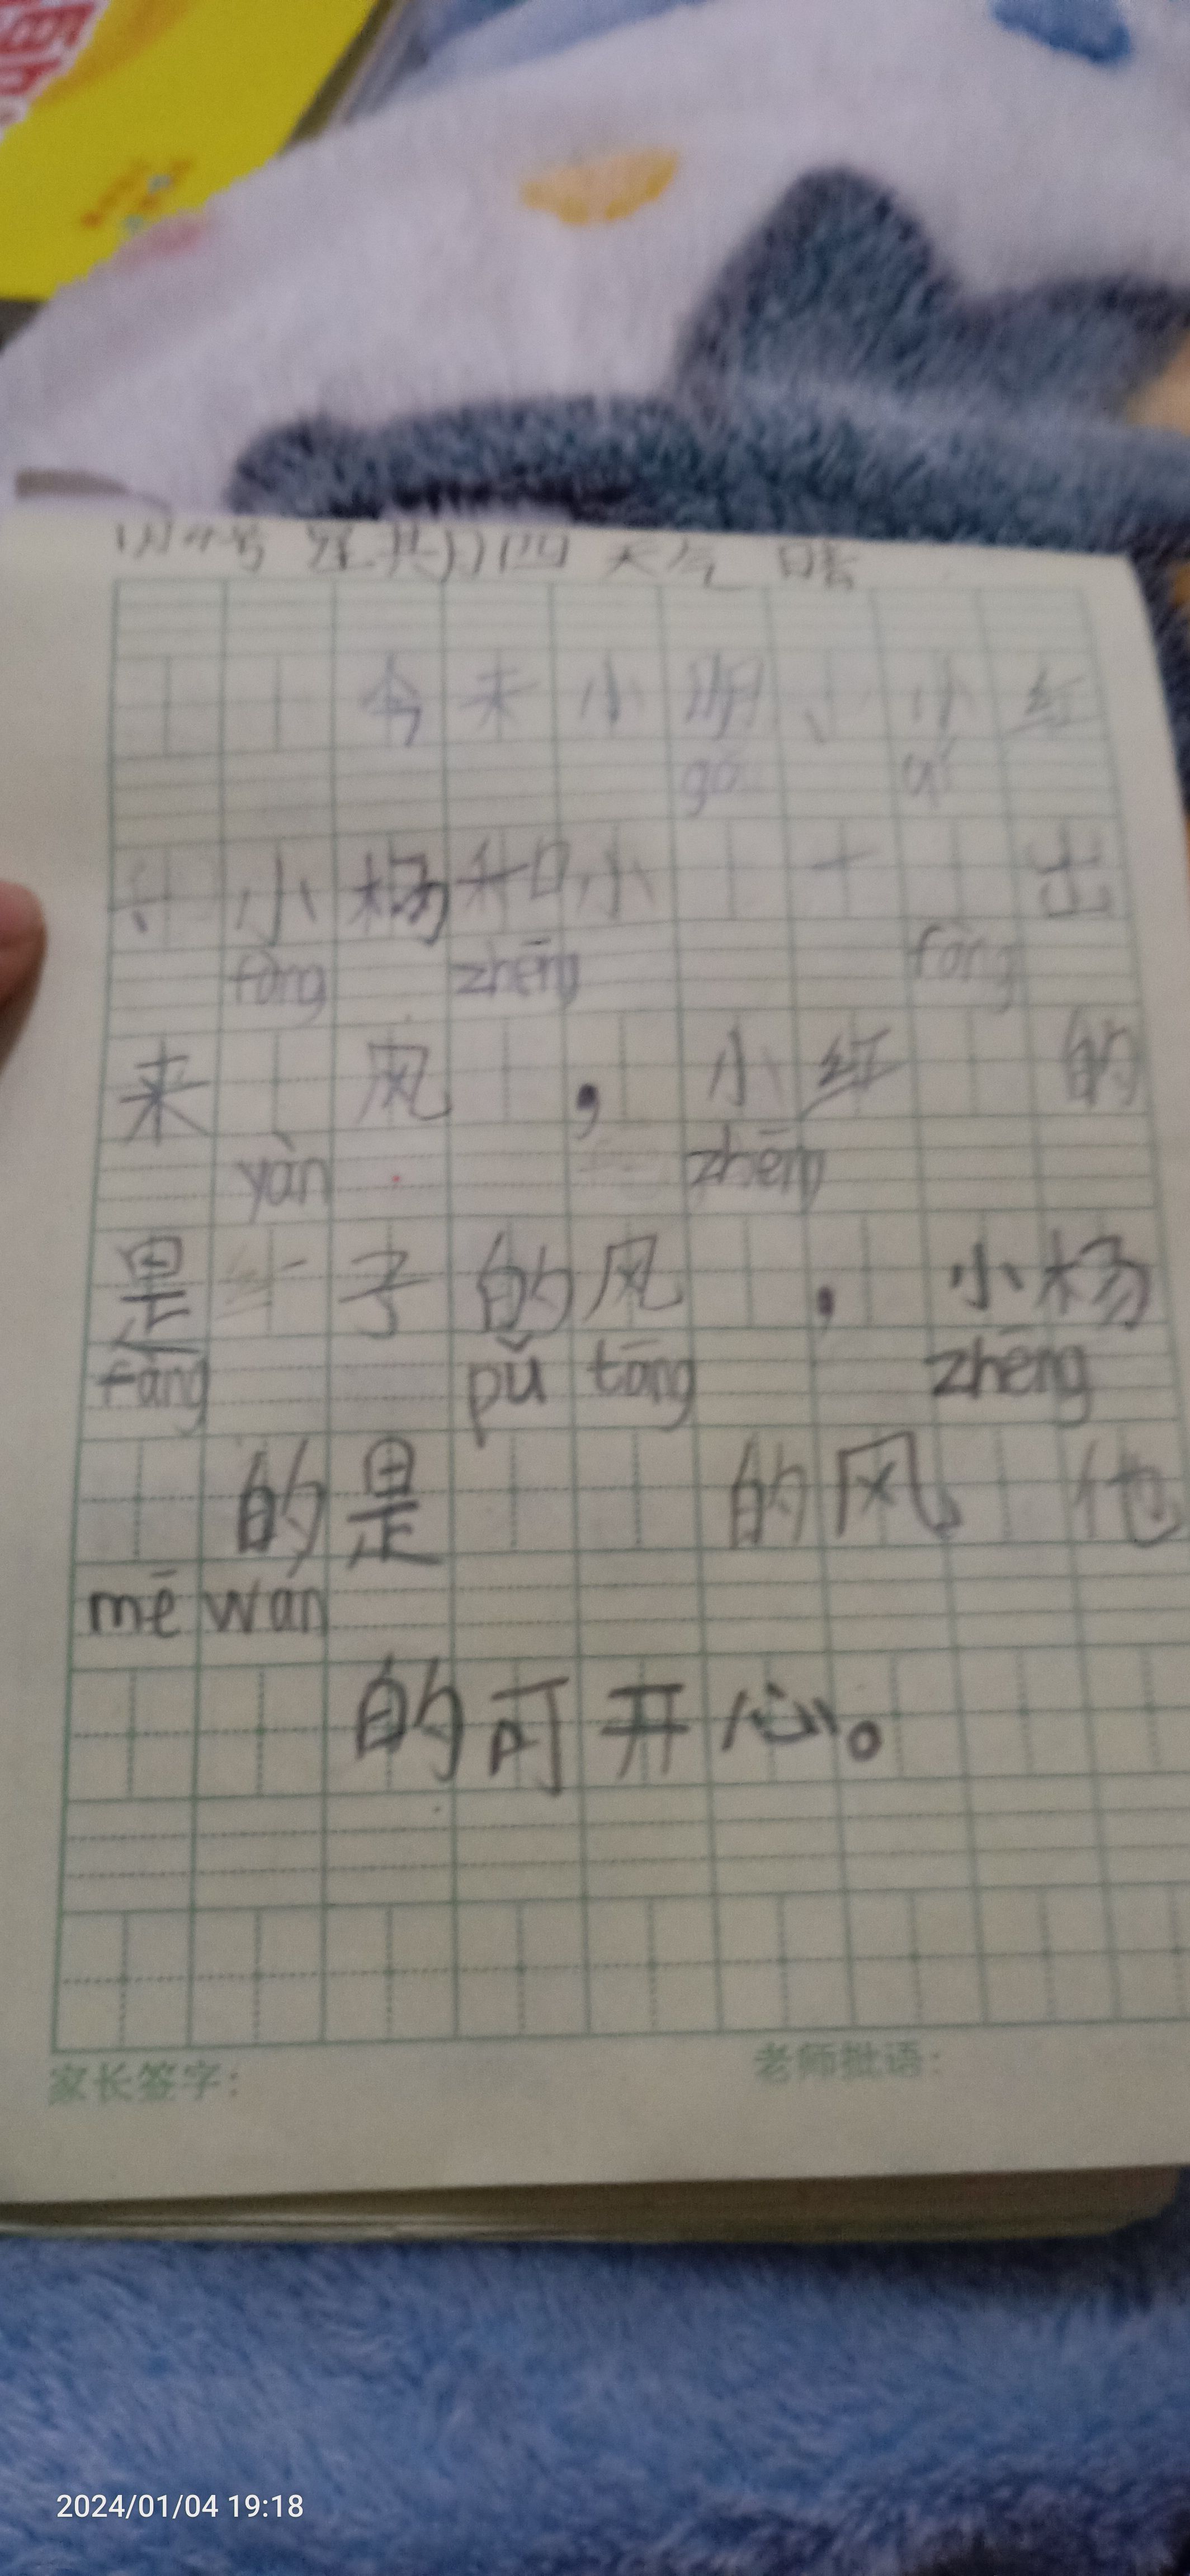 1月4号 星其月四 天气 晴
今天小明、小红
gǒ
小杨和小 出
fàng zhēng fōng
来 风 ，小红 的
yàn zhēng
是 子的风 ，小杨
fàng pǔ tōng zhēng
的是 的风 他
mē wán
的可开心。
家长签字： 老师批语：
2024/01/04 19:18